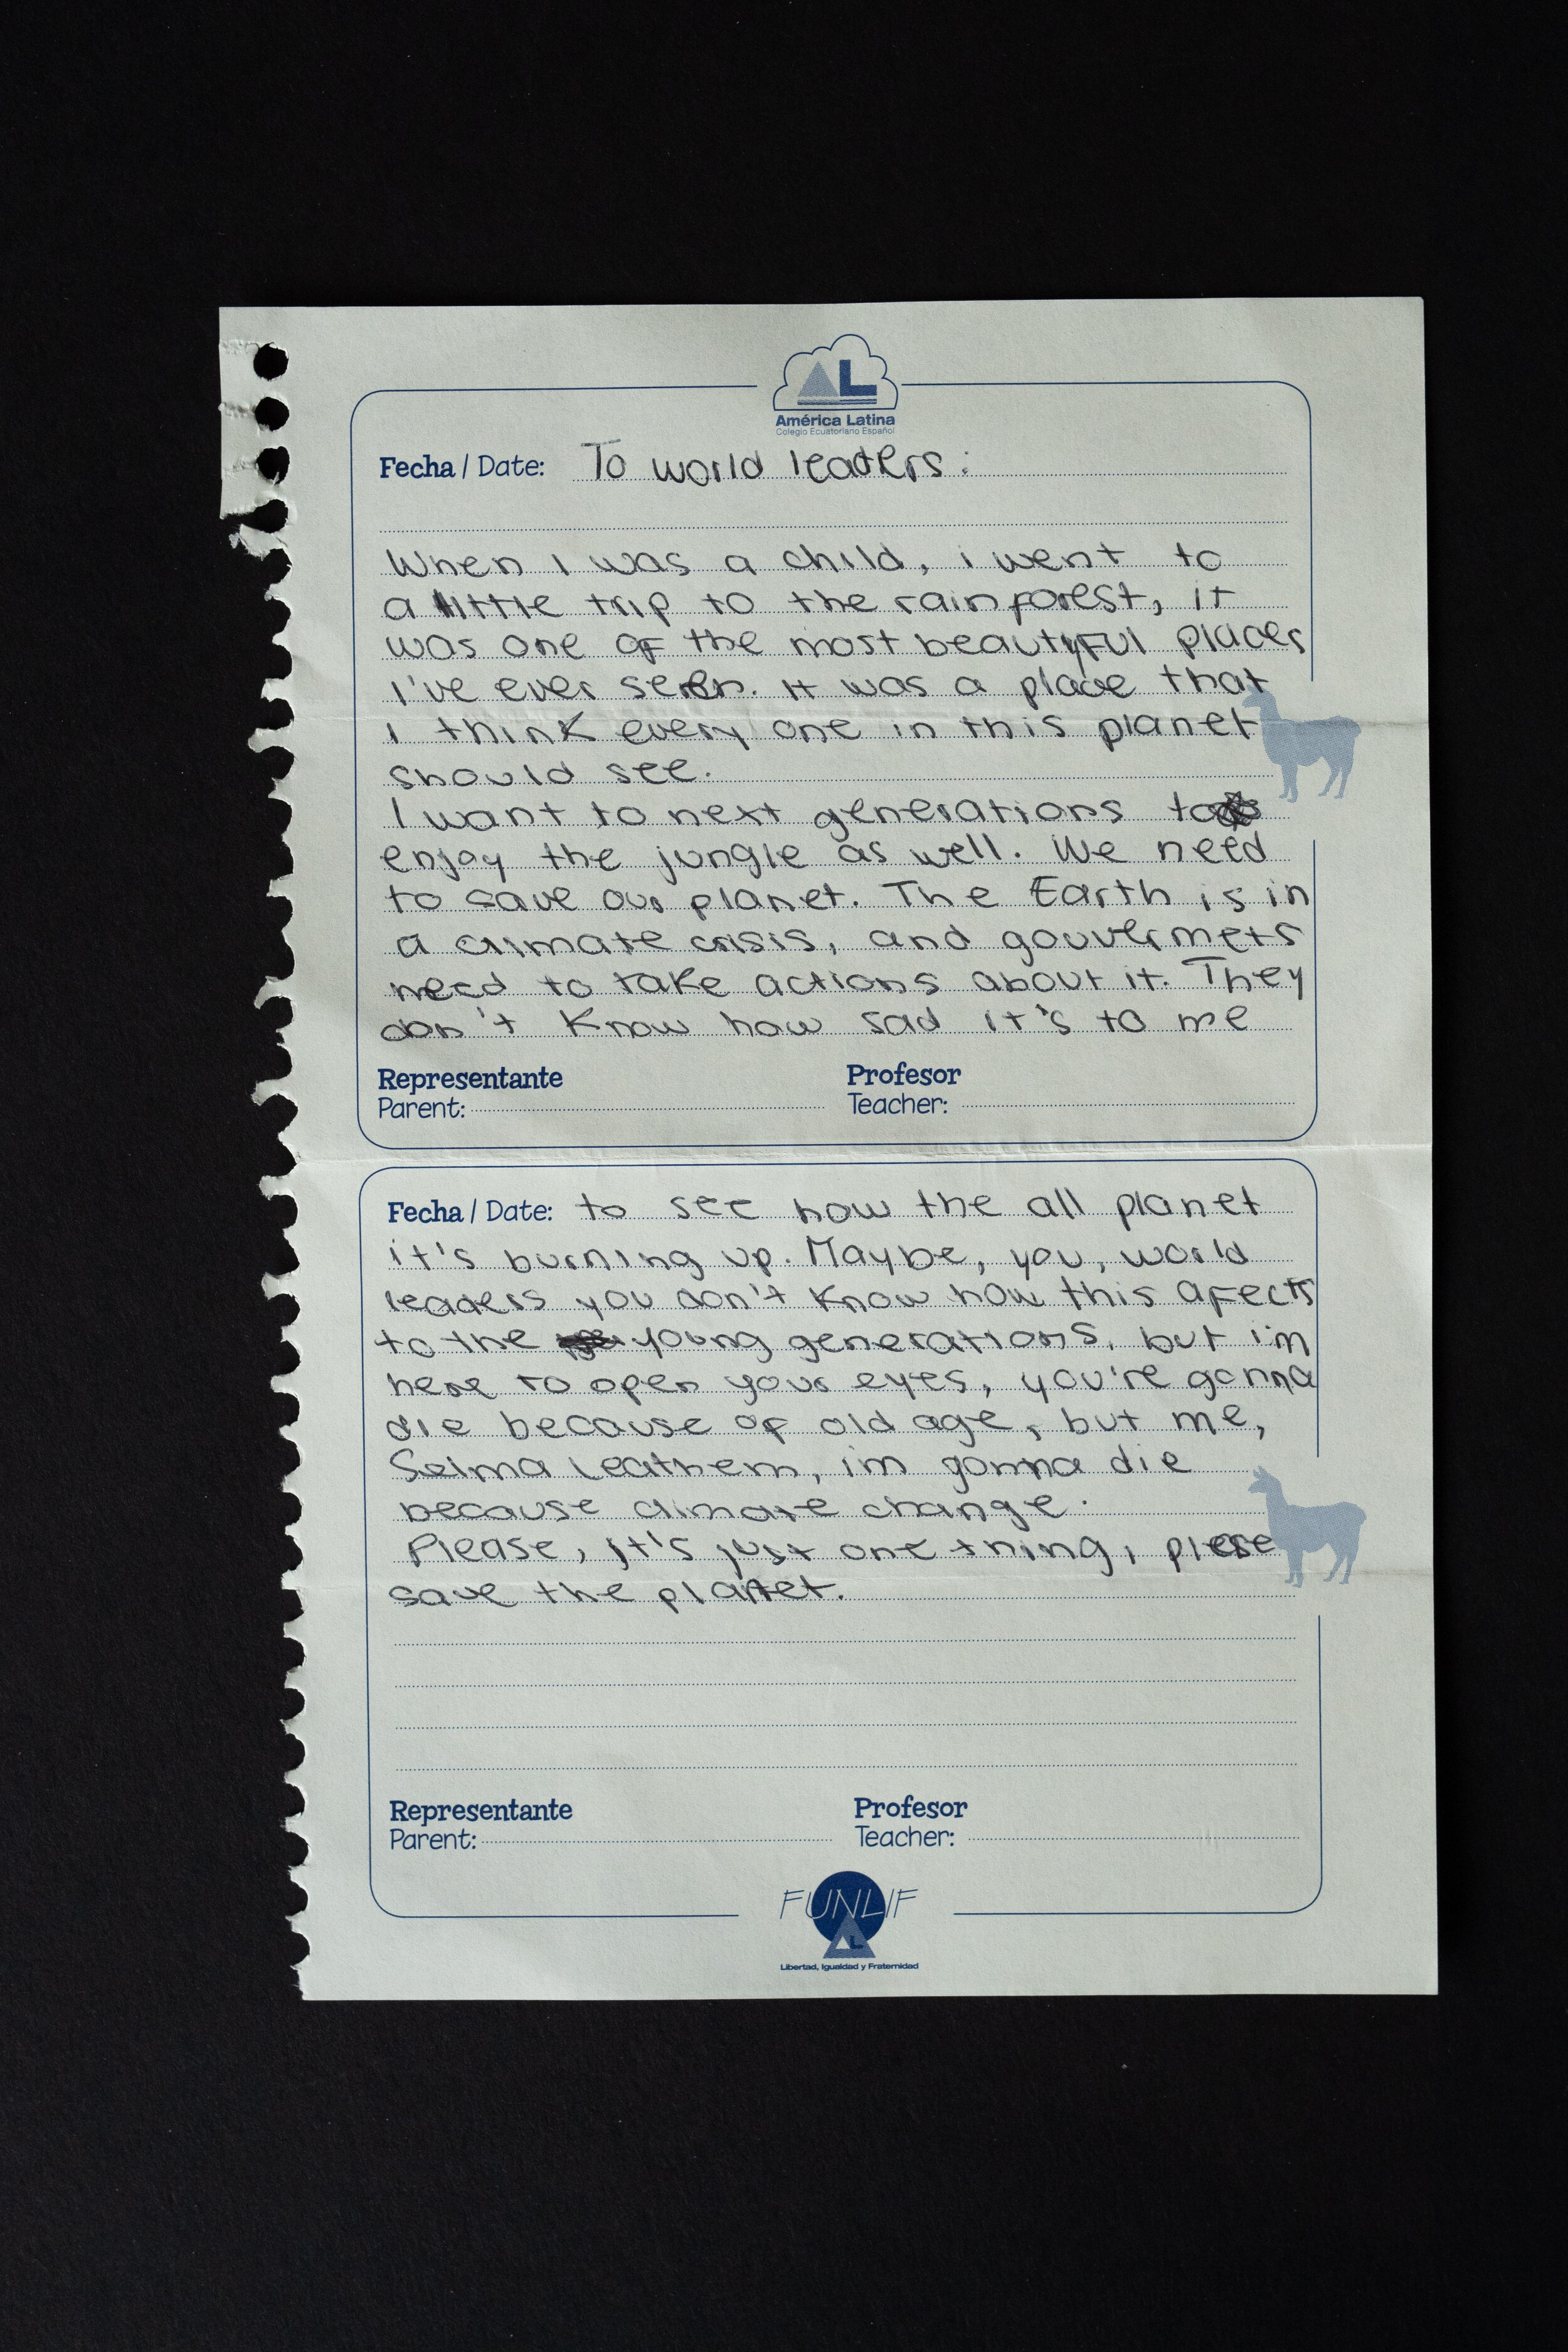 AL
América Latina
Colegio Ecuatoriano Español
Fecha / Date: To world leaders:
When I was a child, i went to
a little trip to the rainforest, it
was one of the most beautyful places
I've ever seen. It was a place that
I think every one in this planet
should see.
I want to next generations to
enjoy the jungle as well. We need
to save our planet. The Earth is in
a climate crisis, and gouvermets
need to take actions about it. They
don't know how sad it's to me
Representante Profesor
Parent: Teacher:
Fecha / Date: to see how the all planet
it's burning up. Maybe, you, world
leaders you don't know how this afects
to the young generations, but i'm
here to open your eyes, you're gonna
die because of old age, but me,
Selma Leathem, im gonna die
because climate change.
Please, it's just one thing, please
save the planet.
Representante Profesor
Parent: Teacher:
FUNLIF
AL
Libertad, Igualdad y Fraternidad